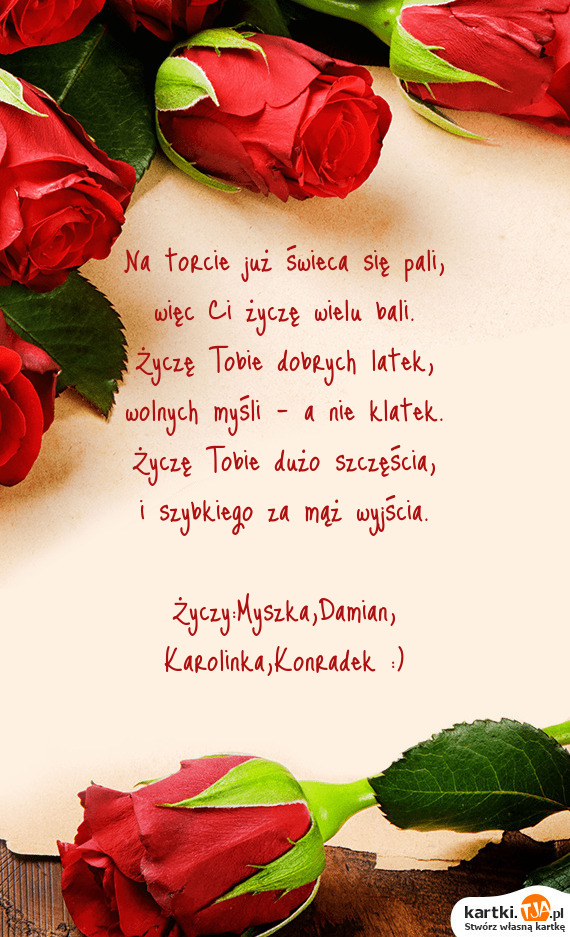 Na torcie już świeca się pali,
więc Ci życzę wielu bali.
Życzę Tobie dobrych latek,
wolnych myśli - a nie klatek.
Życzę Tobie dużo szczęścia,
i szybkiego za mąż wyjścia.
Życzy:Myszka,Damian,
Karolinka,Konradek :)
kartki.TJA.pl
Stwórz własną kartkę